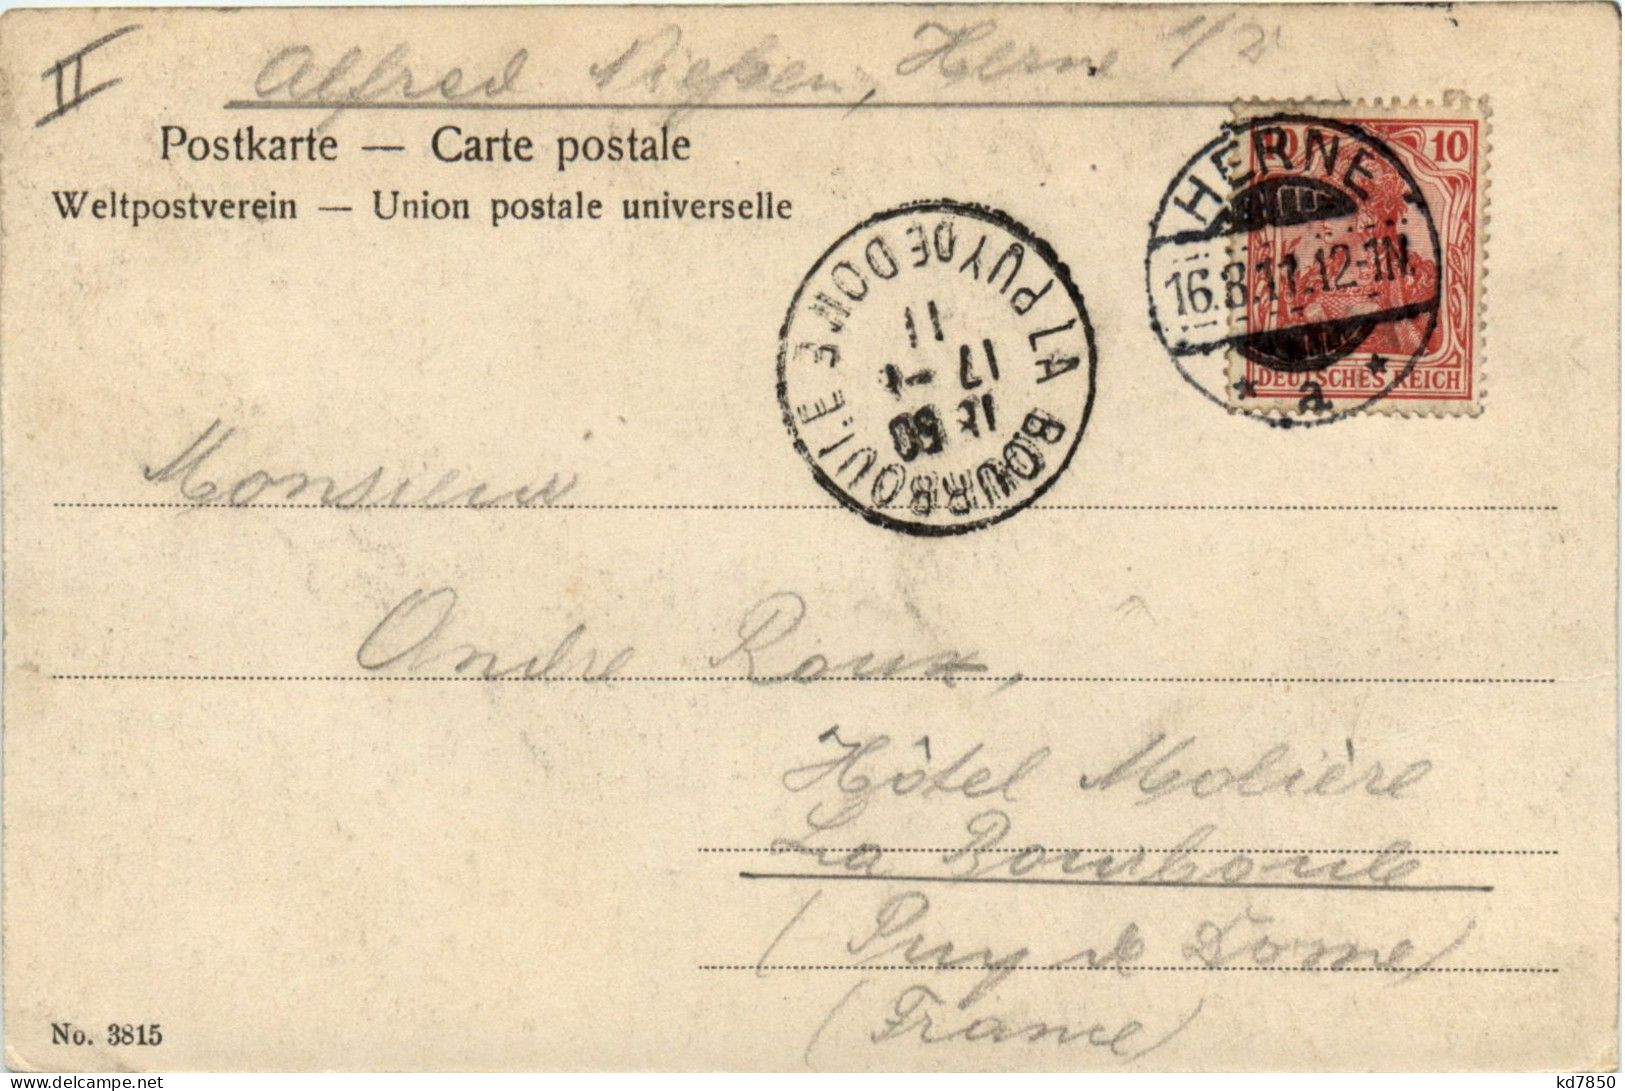 II
Alfred Nießen, Herne i/W
Postkarte — Carte postale
Weltpostverein — Union postale universelle
HERNE
16.8.11.12-1N.
* a *
10
DEUTSCHES REICH
LA BOURBOULE PUY DE DOME
17
11
Monsieur
Andre Roux,
Hôtel Molière
La Bourboule
(Puy de Dome)
(France)
No. 3815
kd7850